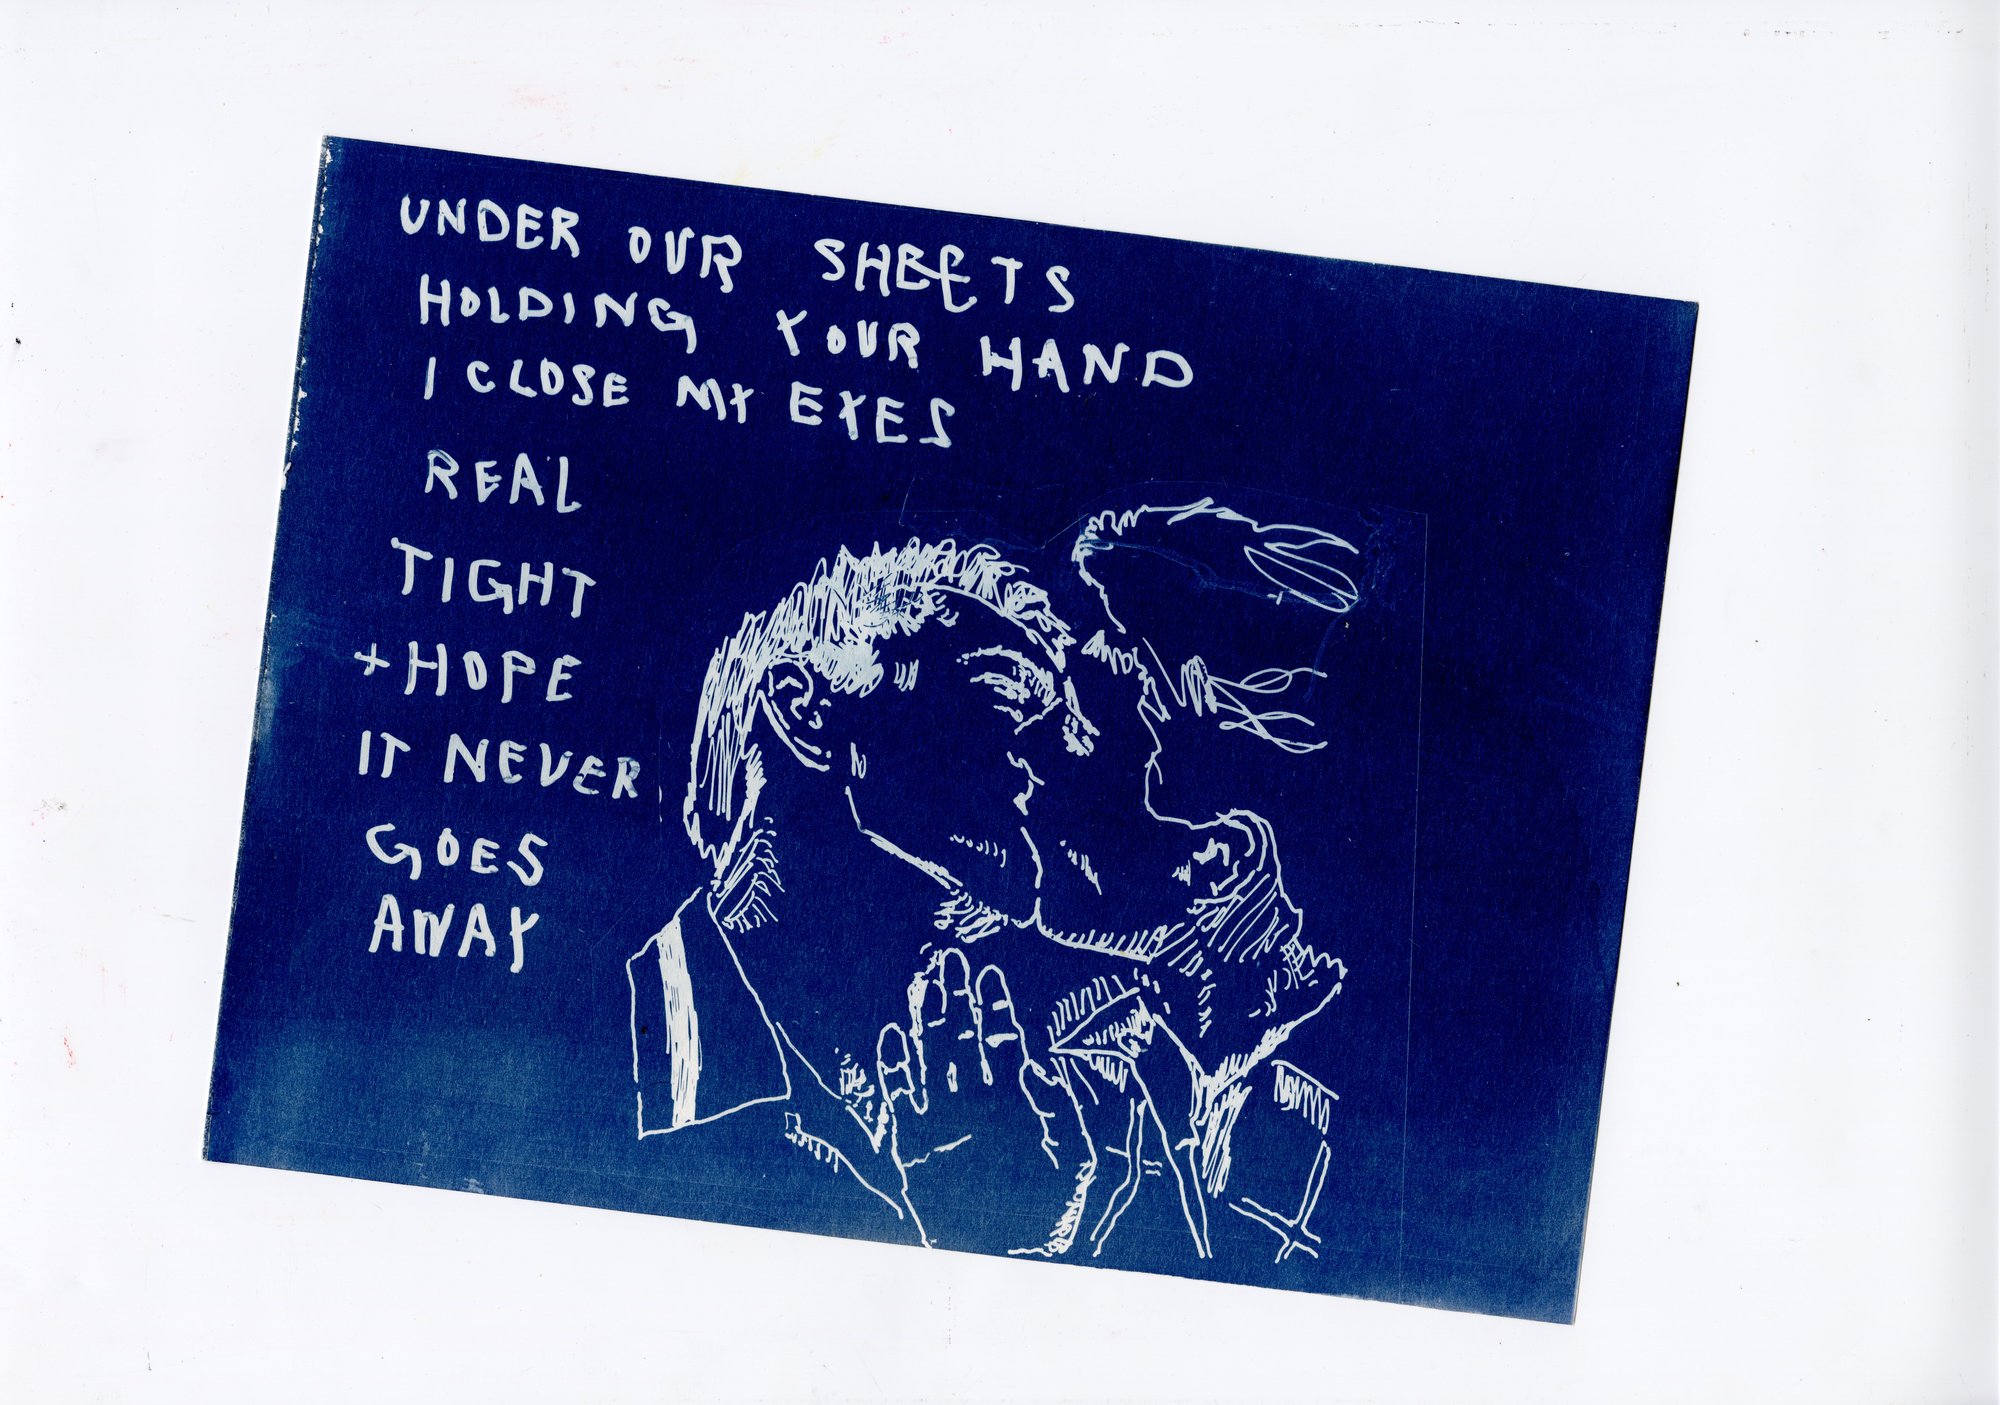 UNDER OUR SHEETS
HOLDING YOUR HAND
I CLOSE MY EYES
REAL
TIGHT
+ HOPE
IT NEVER
GOES
AWAY